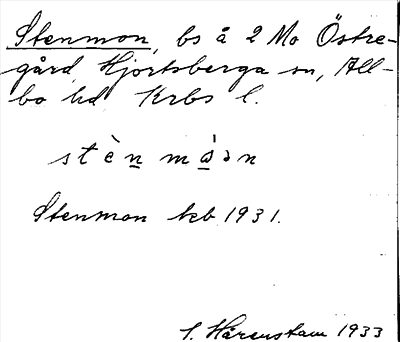 Stenmon, bs å 2 Mo Östre-
gård, Hjortsberga sn, All-
bo hd Krbs l.
stènmòən
Stenmon kb 1931.
S. Hårenstam 1933